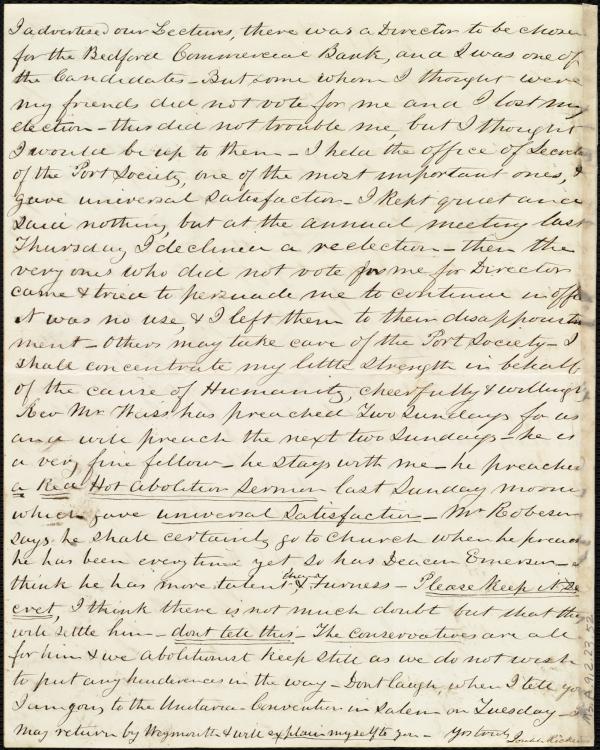 I advertised our Lectures, there was a Director to be chosen
for the Bedford Commercial Bank, and I was one of
the Candidates - But some whom I thought were
my friends did not vote for me and I lost my
election - this did not trouble me, but I thought
I would be up to them - I held the office of Secreta
of the Port Society, one of the most important ones, &
gave universal satisfaction - I kept quiet and
said nothing, but at the annual meeting last
Thursday I declined a reelection - then the
very ones who did not vote for me for Director
came & tried to persuade me to continue in offi
it was no use, & I left them to their disappoint
ment - Others may take care of the Port Society - I
shall concentrate my little strength in behalf
of the cause of Humanity, cheerfully & willingly
Rev Mr. Weiss has preached Two Sundays for us
and will preach the next two Sundays - he is
a very fine fellow - he stays with me - he preached
a Red Hot abolition sermon last Sunday morning
which gave universal satisfaction - Mr Robeson
says he shall certainly go to church when he preach
he has been every time yet so has Deacon Emerson - I
think he has more talent than Furness - Please keep it Se
cret, I think there is not much doubt but that they
will settle him - dont tell this - The conservatives are all
for him & we abolitionist keep still as we do not wish
to put any hinderences in the way - Dont laugh, when I tell you
I am going to the Unitarian Convention in Salem on Tuesday - I
may return by Weymouth & will explain myself to you - Yrs truly Joseph Ricketson
Ms. A.9.2.23.52